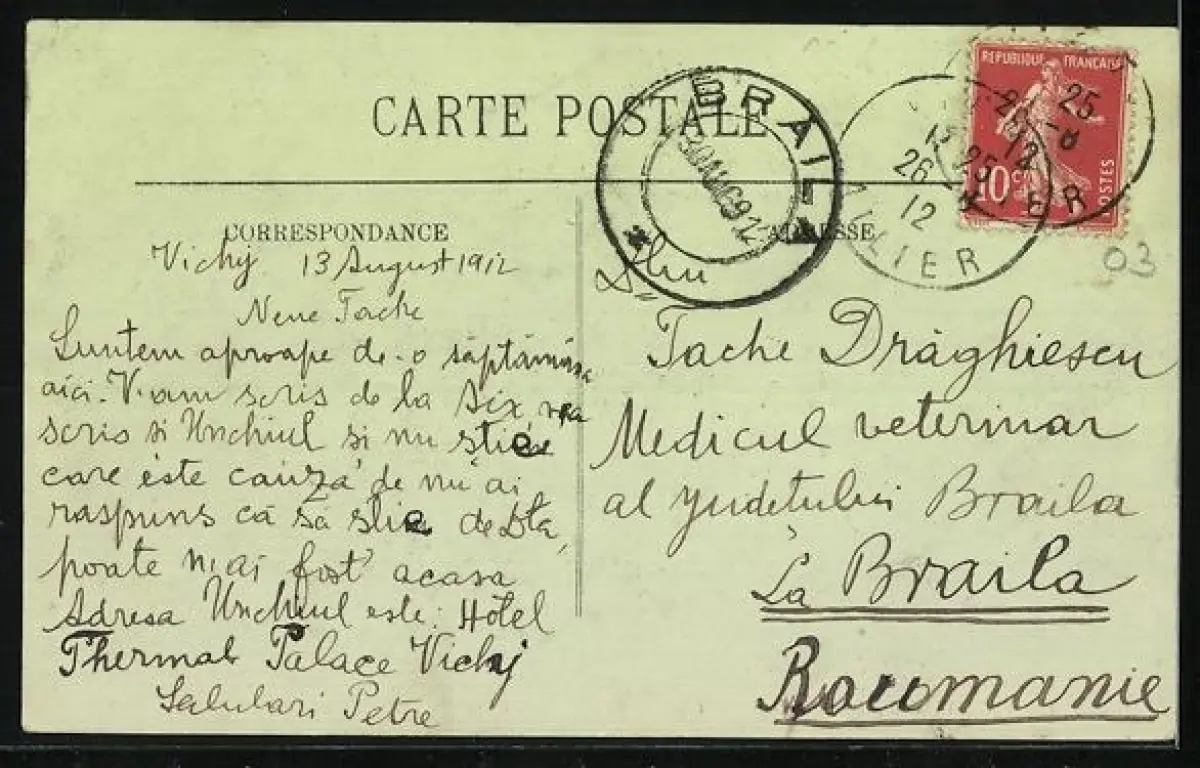 CARTE POSTALE
BRAILA
30 AUG 912
REPUBLIQUE FRANÇAISE
POSTES
10 c
25
12
26
12
ALLIER
CORRESPONDANCE
ADRESSE
03
Vichy 13 August 1912
Nene Tache
Suntem aproape de-o săptămâna
aici. V-am scris de la Aix v-a
scris si Unchiul si nu stie
care este cauza de nu ai
raspuns ca să stie de Dta,
poate n-ai fost acasa
Adresa Unchiul este: Hôtel
Thermal Palace Vichy
Salutari Petre
Dlui
Tache Drăghiescu
Medicul veterinar
al judetului Braila
La Braila
Roumanie